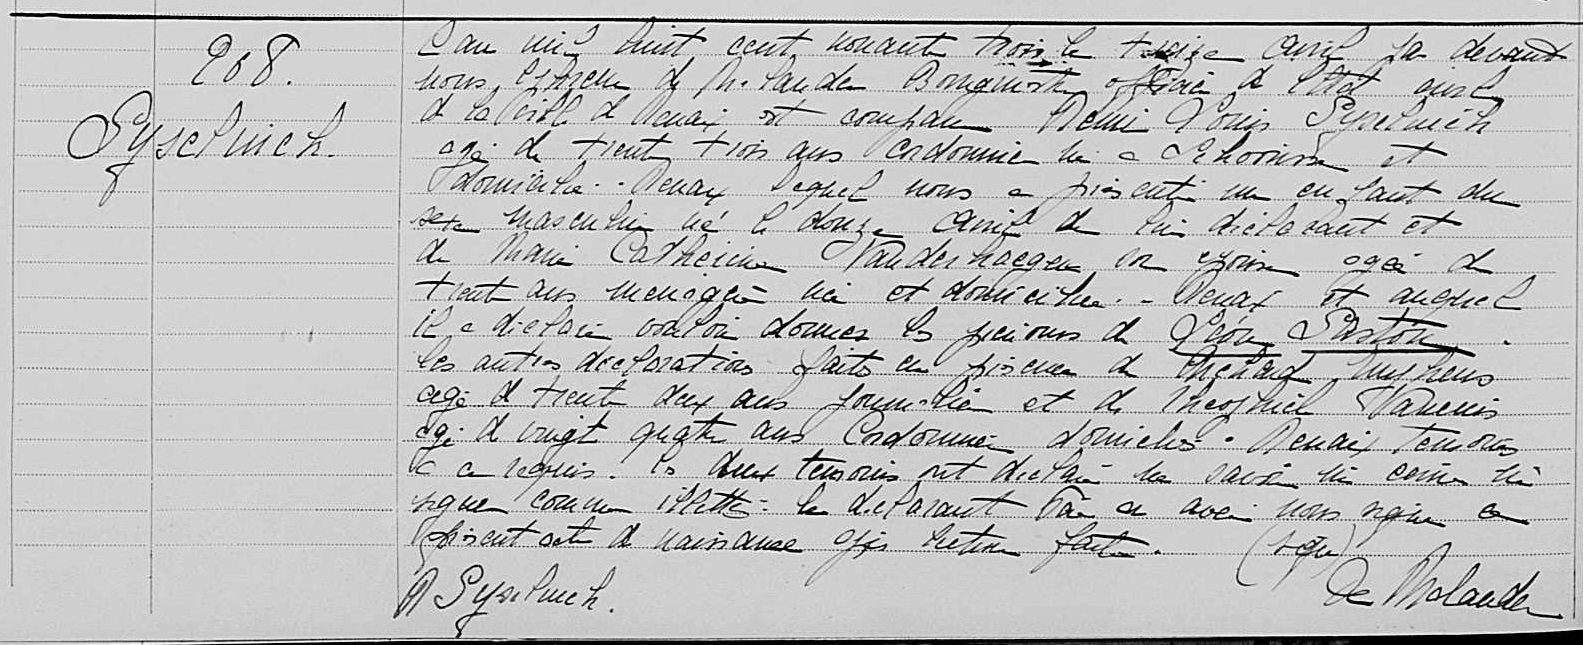 208.
Syselinck.
L'an mil huit cent nonante trois le treize avril par devant
nous de Malander Bourgmestre officier de l'état civil
de la ville de Renaix est comparu Remi Louis Syselinck
agé de trente trois ans cordonnier né a Schoorisse et
domicilié a Renaix lequel nous a présenté un enfant du
sexe masculin né le douze avril de lui déclarant et
de Marie Catherine Vanderhaegen son épouse agée de
trente ans menagère née et domiciliée a Renaix et auquel
il a déclaré vouloir donner les prénoms de Léon Gaston.
les autres déclarations faites en présence de Richard Huyhens
agé de trente deux ans journalier et de Théophile
agé de vingt quatre ans Cordonnier domiciliés a Renaix temoins
a ce requis. les deux temoins ont déclaré ne savoir ni écrire ni
signer comme illettrés le déclarant a avec nous signé le
présent acte de naissance après lecture faite. (signé)
R Syselinck. De Malander